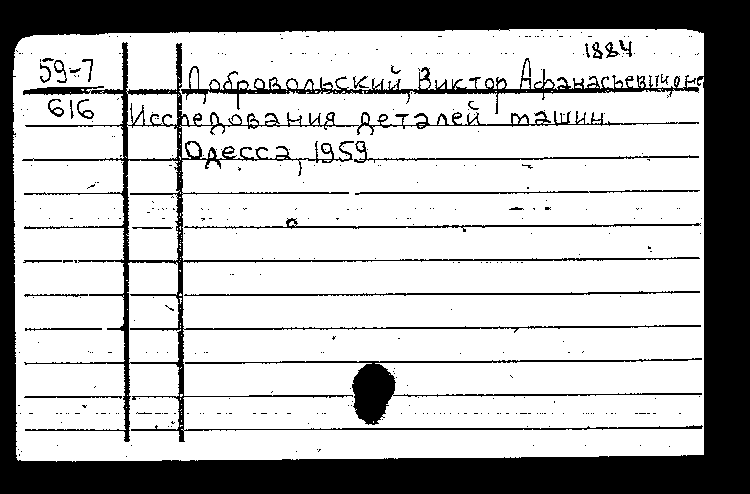 1884
59-7
616
Добровольский, Виктор Афанасьевич
Исследования деталей машин.
Одесса, 1959